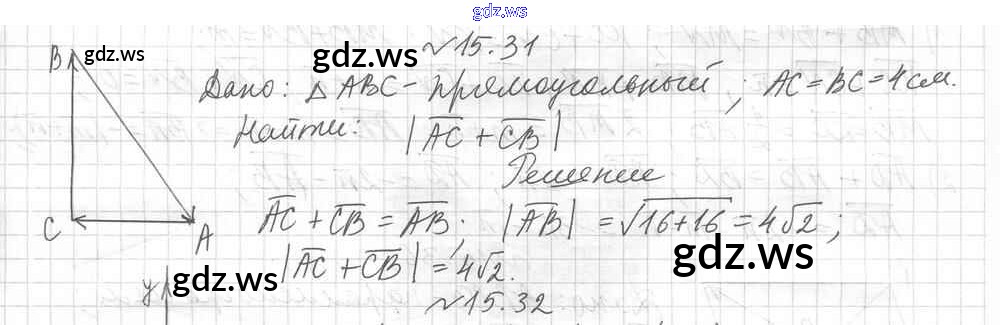 gdz.ws
B gdz.ws
gdz.ws
№ 15.31
Дано: △ ABC - прямоугольный ; AC = BC = 4 см.
Найти: |AC + CB|
Решение
C A
AC + CB = AB; |AB| = √16+16 = 4√2;
|AC + CB| = 4√2.
gdz.ws
y gdz.ws
№ 15.32